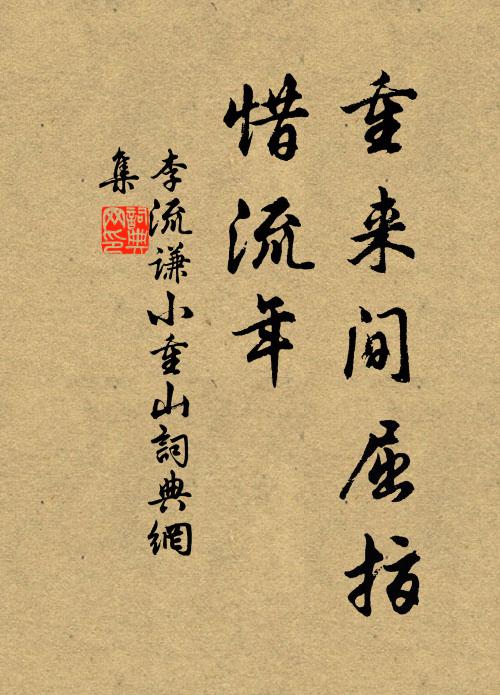 重来间屈指
惜流年
李流谦小重山詞典網
集
詞典网印